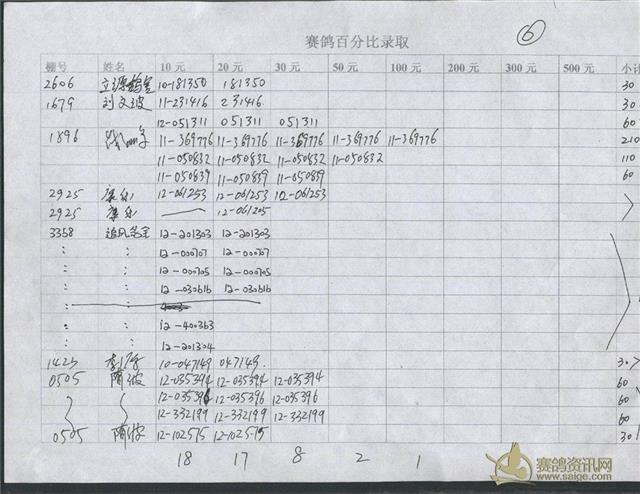 赛鸽百分比录取 ⑥
棚号 姓名 10元 20元 30元 50元 100元 200元 300元 500元 小计
2606 立源鸽舍 10-181350 181350 30
1679 刘文波 11-231416 231416 30
12-051311 051311 051311 60
1896 11-369776 11-369776 11-369776 11-369776 11-369776 210
11-050832 11-050832 11-050832 11-050832 110
11-050839 11-050839 11-050839 60
2925 12-061253 12-061253 12-061253
2925 — 12-061205
3358 追风鸽舍 12-201303 12-201303
: : 12-000707 12-000707
: : 12-000705 12-000705
: : 12-030616 12-030616
: :
: : 12-400363
: : 12-201304
1425 10-047149 047149 30
0505 隋波 12-035394 12-035394 12-035394 60
12-035396 12-035396 12-035396 60
12-332199 12-332199 12-332199 60
0505 隋波 12-102575 12-102575 30
18 17 8 2 1
赛鸽资讯网
www.saige.com